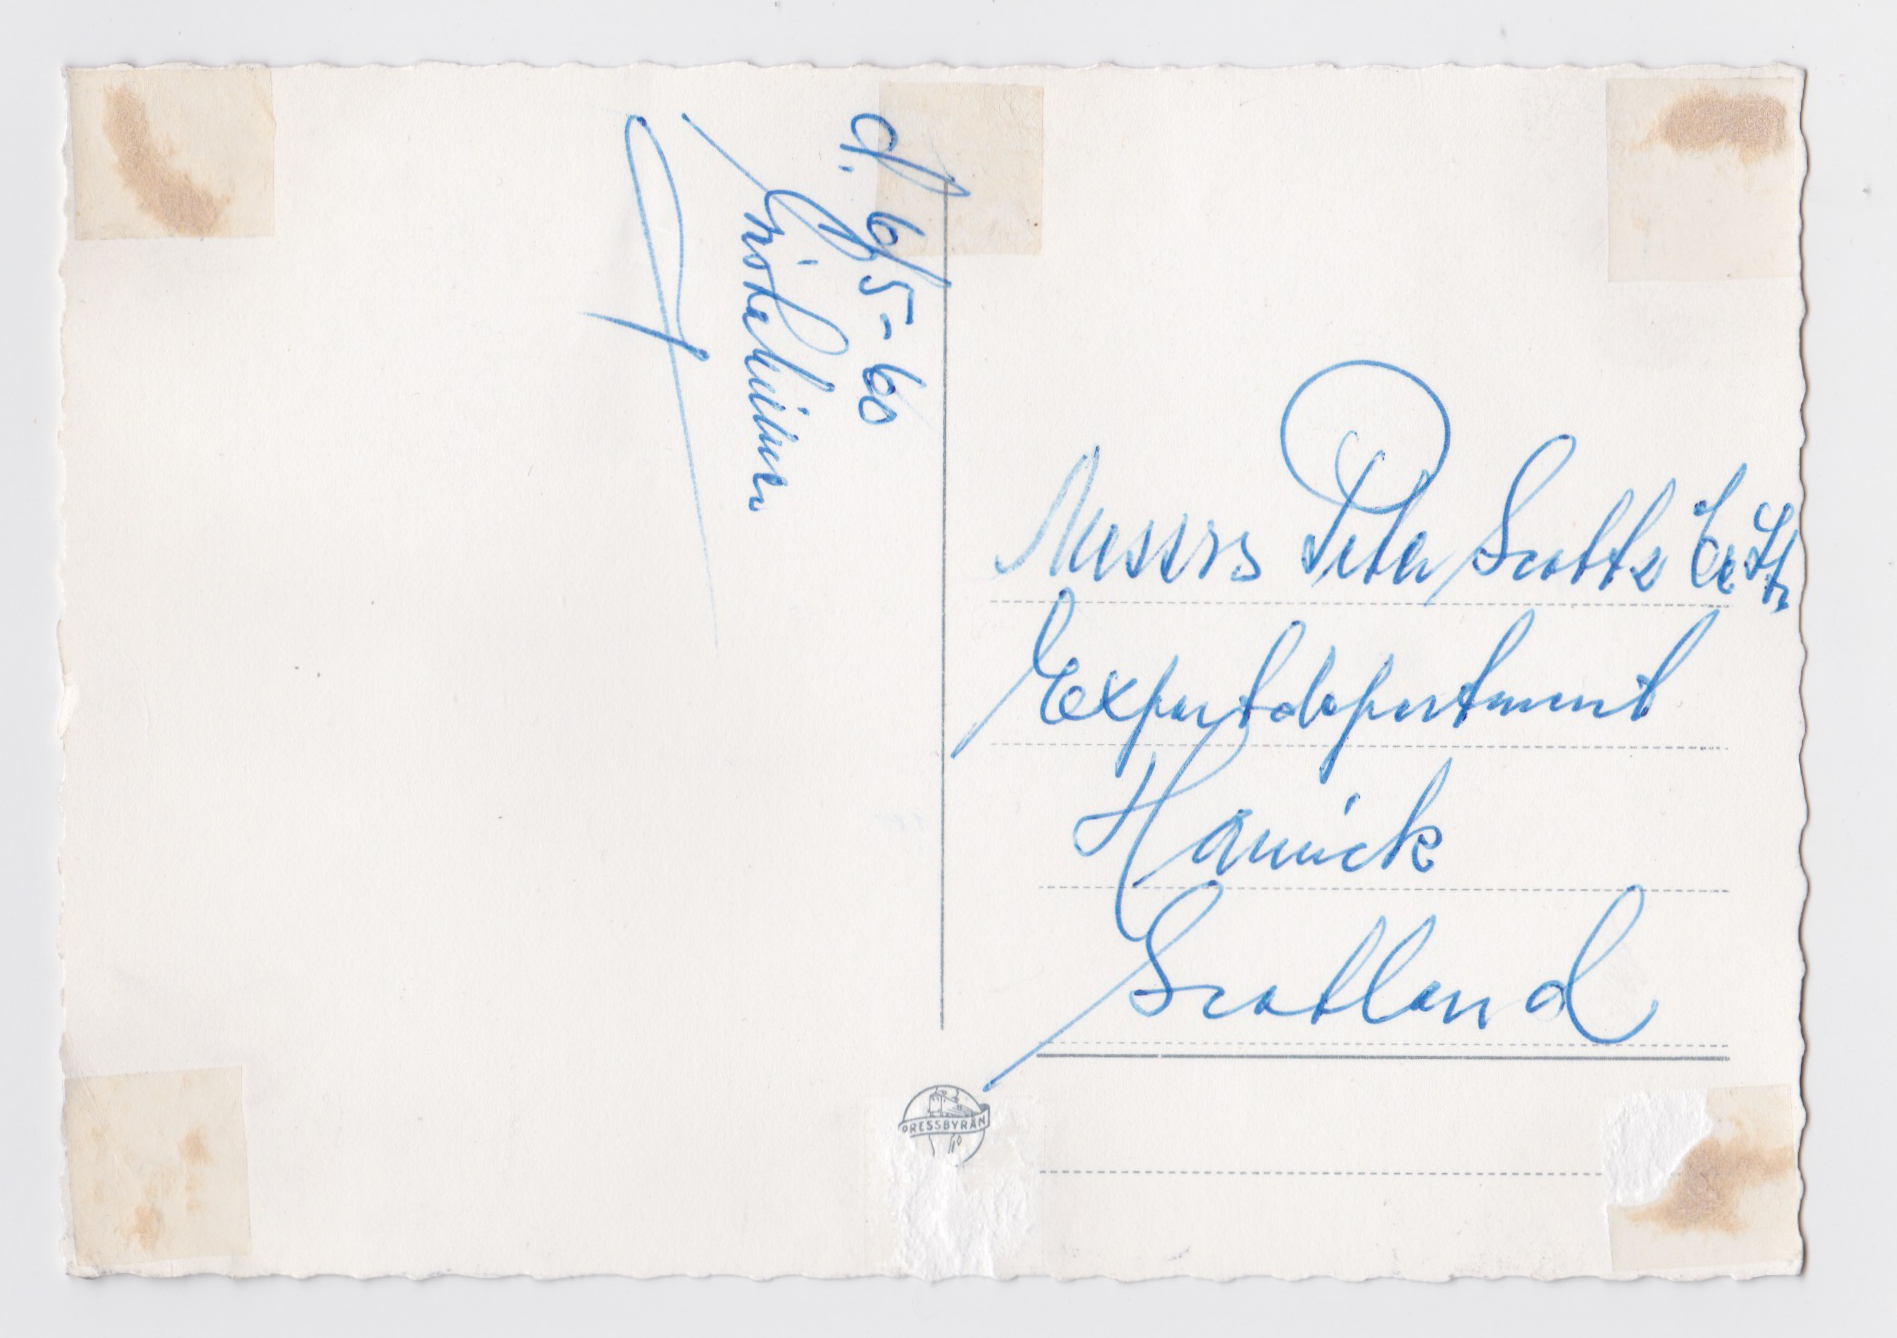 d. 6/5-60
Messrs Peter Scotts Co Ltd
Exportdepartment
Hawick
Scotland
PRESSBYRÅN